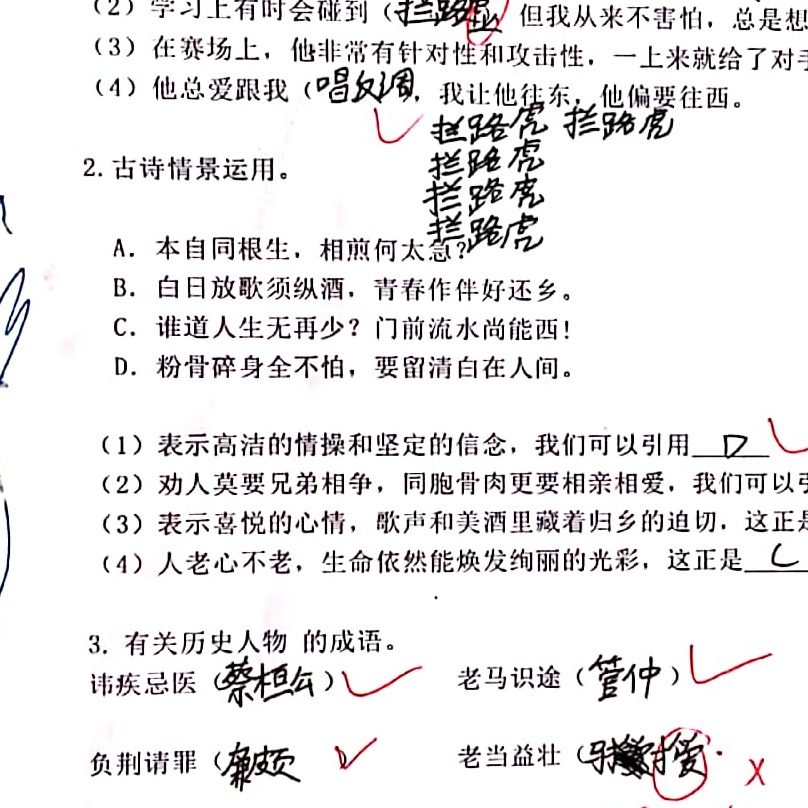 (2) 学习上有时会碰到(拦路虎 但我从来不害怕,总是想
(3) 在赛场上,他非常有针对性和攻击性,一上来就给了对手
(4) 他总爱跟我(唱反调,我让他往东,他偏要往西。
拦路虎 拦路虎
拦路虎
2. 古诗情景运用。
拦路虎
拦路虎
A. 本自同根生,相煎何太急?
B. 白日放歌须纵酒,青春作伴好还乡。
C. 谁道人生无再少?门前流水尚能西!
D. 粉骨碎身全不怕,要留清白在人间。
(1) 表示高洁的情操和坚定的信念,我们可以引用 D
(2) 劝人莫要兄弟相争,同胞骨肉更要相亲相爱,我们可以引
(3) 表示喜悦的心情,歌声和美酒里藏着归乡的迫切,这正是
(4) 人老心不老,生命依然能焕发绚丽的光彩,这正是 C
3. 有关历史人物 的成语。
讳疾忌医(蔡桓公) 老马识途(管仲)
负荆请罪( 老当益壮(